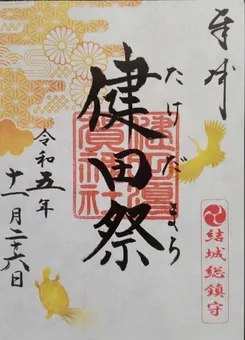 奉拝
たけだまち
健田祭
健田須
賀神社
結城総鎮守
令和五年
十一月二十六日